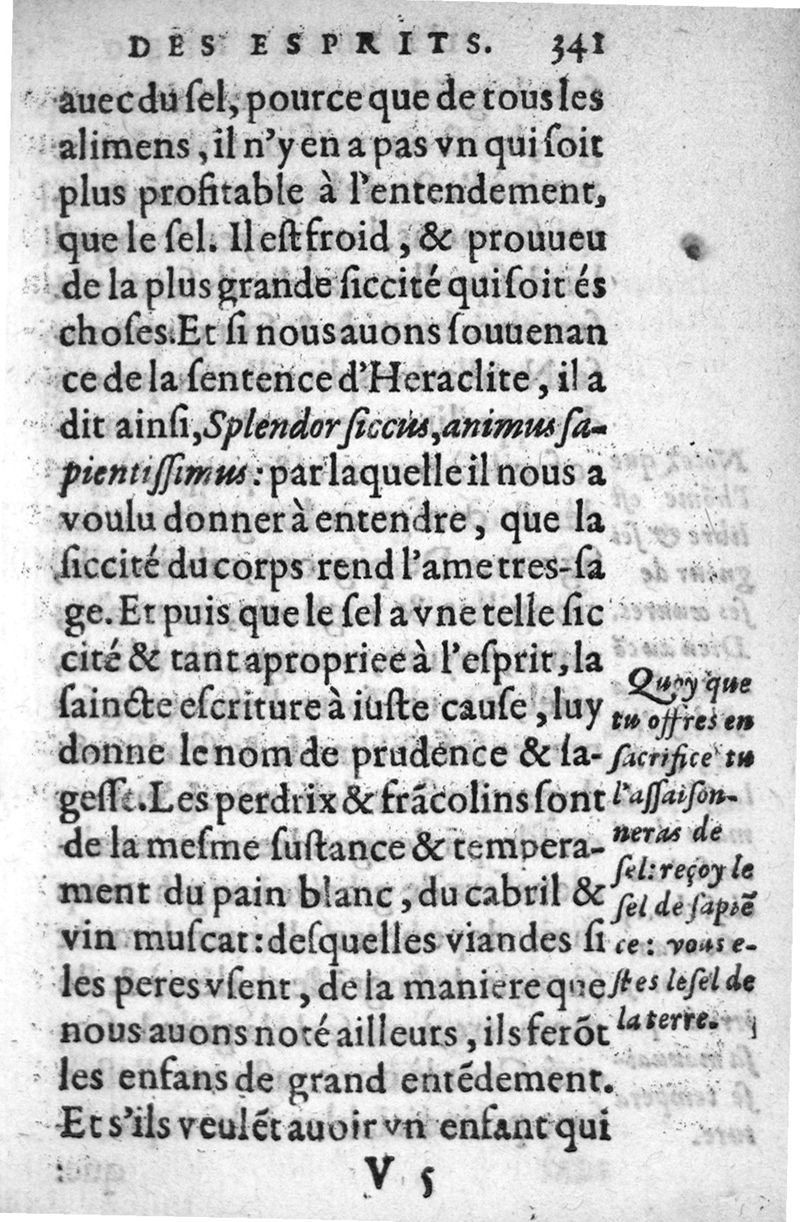 DES ESPRITS. 341
auec du ſel, pource que de tous les
alimens, il n'y en a pas vn qui ſoit
plus profitable à l'entendement,
que le ſel. Il eſt froid, & prouueu
de la plus grande ſiccité qui ſoit és
choſes. Et ſi nous auons ſouuenan
ce de la ſentence d'Heraclite, il a
dit ainſi, Splendor ſiccus, animus ſa-
pientiſſimus: par laquelle il nous a
voulu donner à entendre, que la
ſiccité du corps rend l'ame tres-ſa
ge. Et puis que le ſel a vne telle ſic
cité & tant apropriee à l'eſprit, la
ſaincte eſcriture à iuſte cauſe, luy
donne le nom de prudence & ſa-
geſſe. Les perdrix & frãcolins ſont
de la meſme ſuſtance & tempera-
ment du pain blanc, du cabril &
vin muſcat: deſquelles viandes ſi
les peres vſent, de la maniere que
nous auons noté ailleurs, ils ferõt
les enfans de grand entẽdement.
Et s'ils veulẽt auoir vn enfant qui
Quoy que
tu offres en
ſacrifice tu
l'aſſaiſon-
neras de
ſel: reçoy le
ſel de ſapiẽ
ce: vous e-
ſtes le ſel de
la terre.
V 5